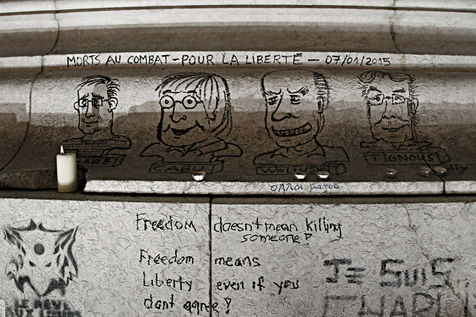 MORTS AU COMBAT - POUR LA LIBERTÉ - 07/01/2015
CHARB
CABU
WOLINSKI
TIGNOUS
Freedom doesn't mean killing
someone!
Freedom means
Liberty even if you
dont agree!
JE SUIS
CHARLIE
LE RÊVE
AUX